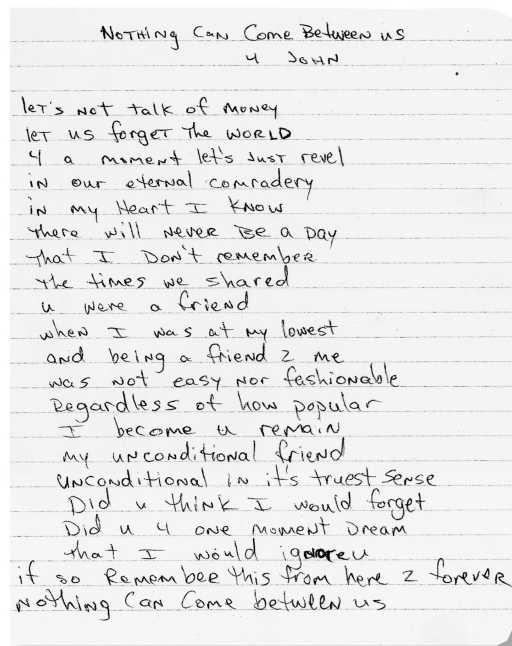 Nothing Can Come Between us
4 John
let's not talk of money
let us forget the world
4 a moment let's just revel
in our eternal comradery
in my Heart I know
there will never be a day
that I Don't remember
the times we shared
u were a friend
when I was at my lowest
and being a friend 2 me
was not easy nor fashionable
Regardless of how popular
I become u remain
my unconditional friend
unconditional in it's truest sense
Did u think I would forget
Did u 4 one moment Dream
that I would ignore u
if so Remember this from here 2 forever
nothing can come between us